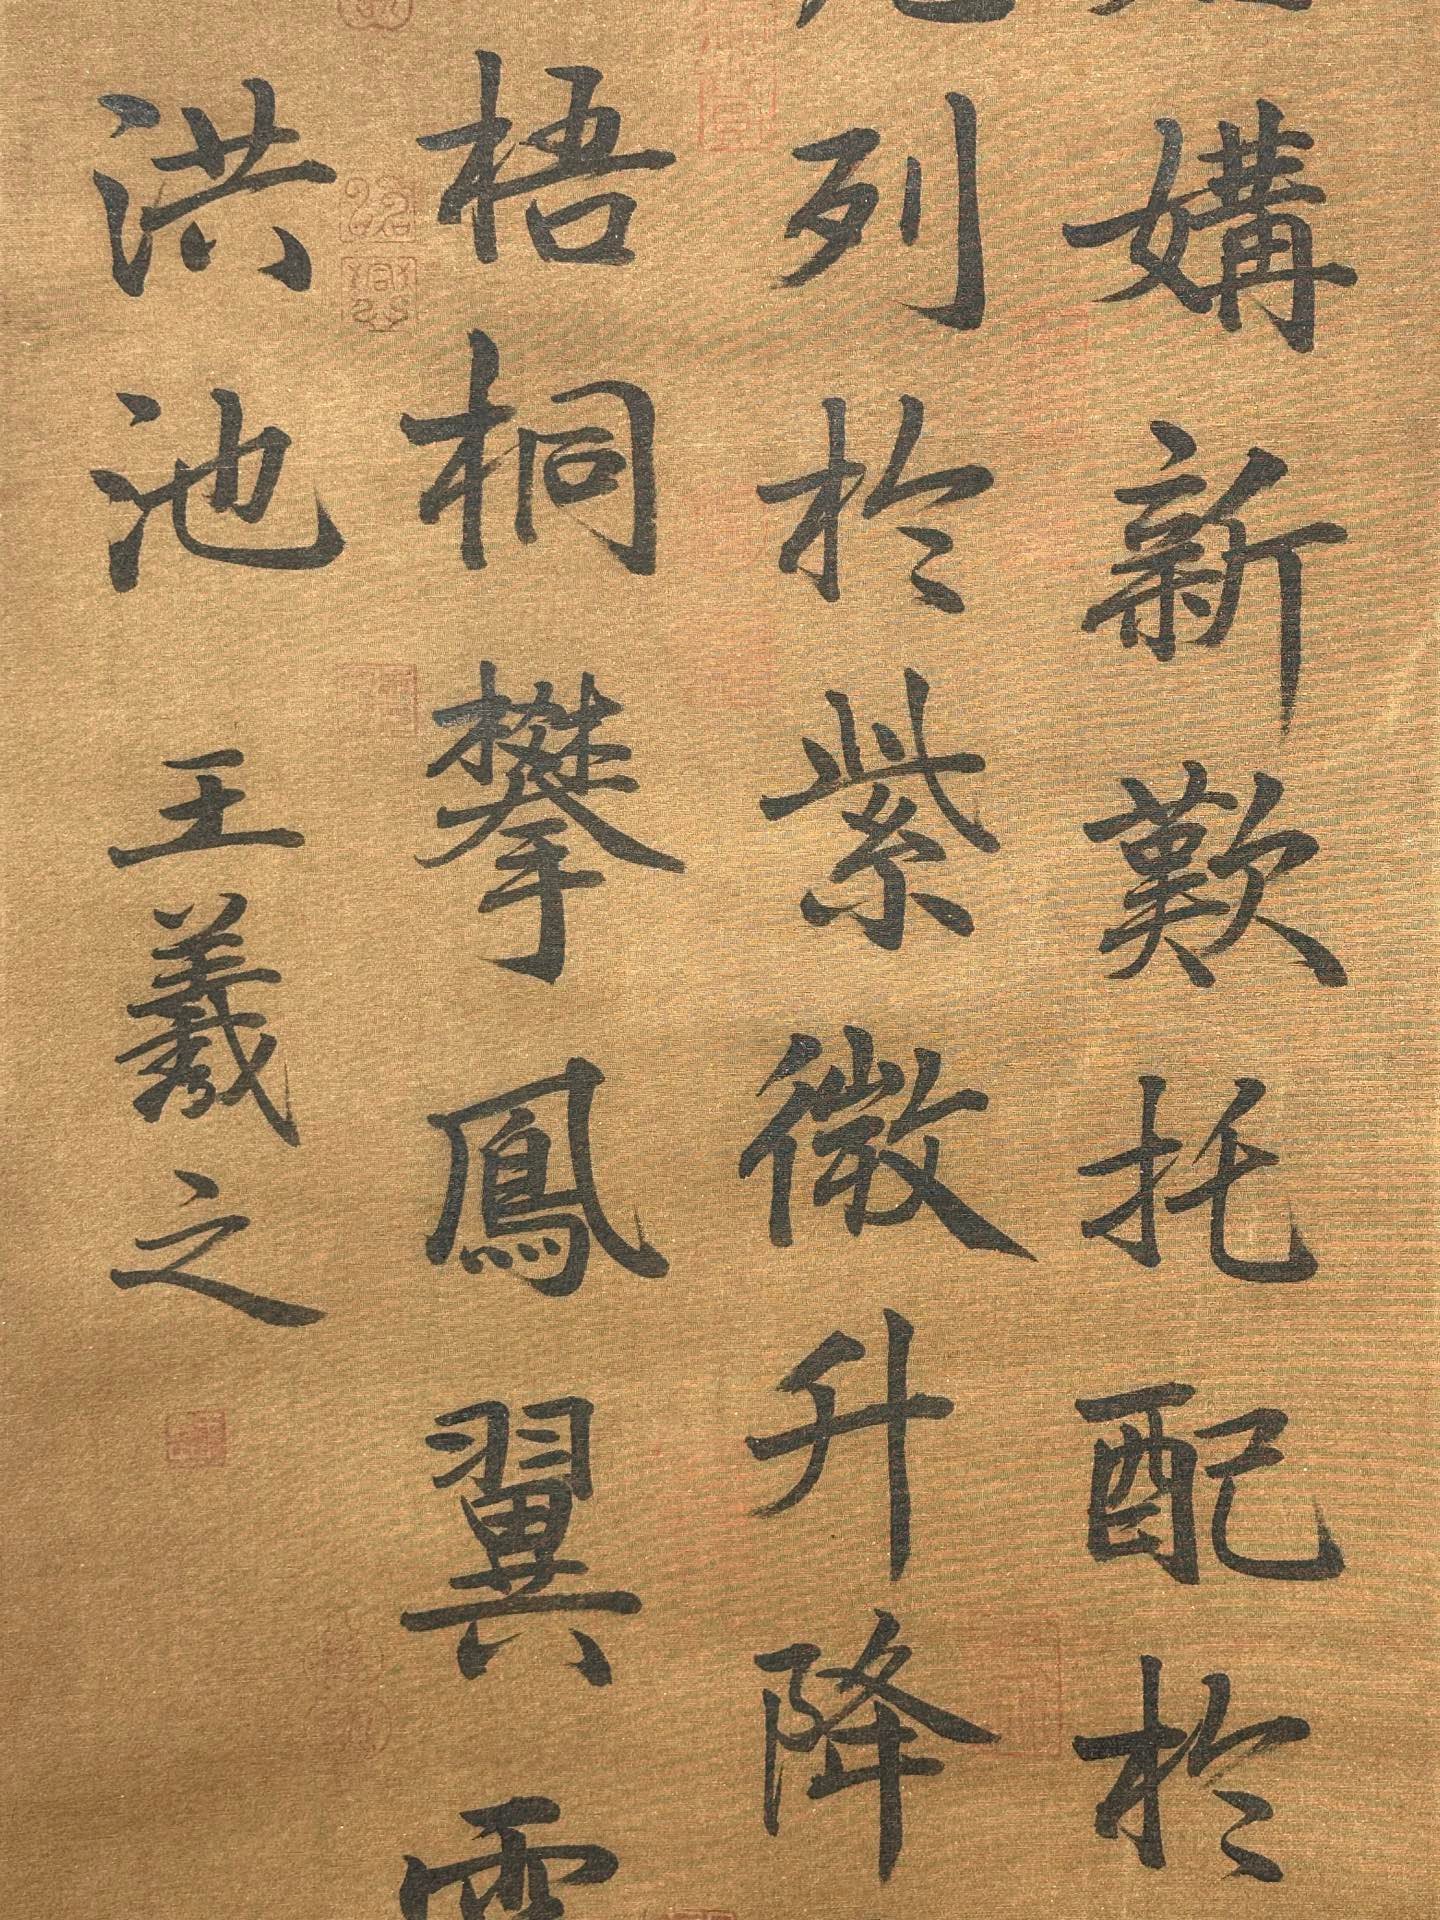 媾新歎托配於
列於紫微升降
梧桐攀鳳翼雲
洪池
王羲之